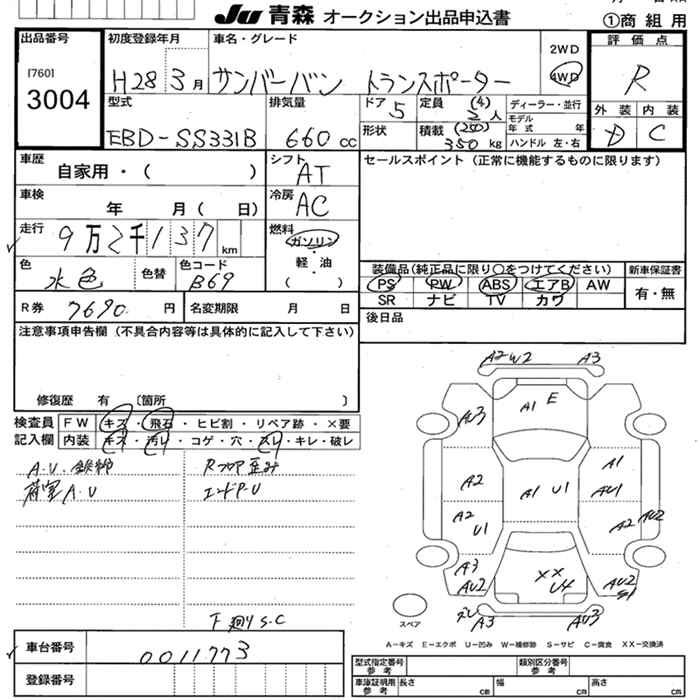 JU 青森 オークション出品申込書
①商組用
出品番号
[760]
3004
初度登録年月
H28 3月
車名・グレード
サンバーバン トランスポーター
2WD
4WD
評価点
R
型式
EBD-SS331B
排気量
660 cc
ドア 5
形状
定員 (4) 2人
積載 (250) 350 kg
ディーラー・並行
モデル年式 年
ハンドル 左・右
外装 内装
D C
車歴
自家用・( )
シフト
AT
セールスポイント (正常に機能するものに限ります)
車検
年 月 ( 日)
冷房
AC
走行
9万2千137 km
燃料
ガソリン
・
軽油
・
( )
色
水色
色替
色コード
B69
装備品(純正品に限り○をつけてください)
新車保証書
PS PW ABS エアB AW
SR ナビ TV カワ
有・無
R券 7690 円
名変期限 月 日
後日品
注意事項申告欄 (不具合内容等は具体的に記入して下さい)
修復歴 有 〔箇所 〕
検査員記入欄
FW キズ・飛石・ヒビ割・リペア跡・×要
内装 キズ・汚レ・コゲ・穴・スレ・キレ・破レ
A.U.
Rフロア歪み
荷室A.U
エンドP-U
下廻りS.C
A2 W2 A3
A1 E
AU3
A2 A1 U1 A1
AU1
A2 U1 A2 AU2
A3
AU2
XX
U4
AU2
S1
A3 AU3
スペア
A－キズ E－エクボ U－凹み W－補修跡 S－サビ C－腐食 XX－交換済
車台番号
0011773
登録番号
型式指定番号
参考
類別区分番号
参考
車庫証明用
参考
長さ cm
幅 cm
高さ cm